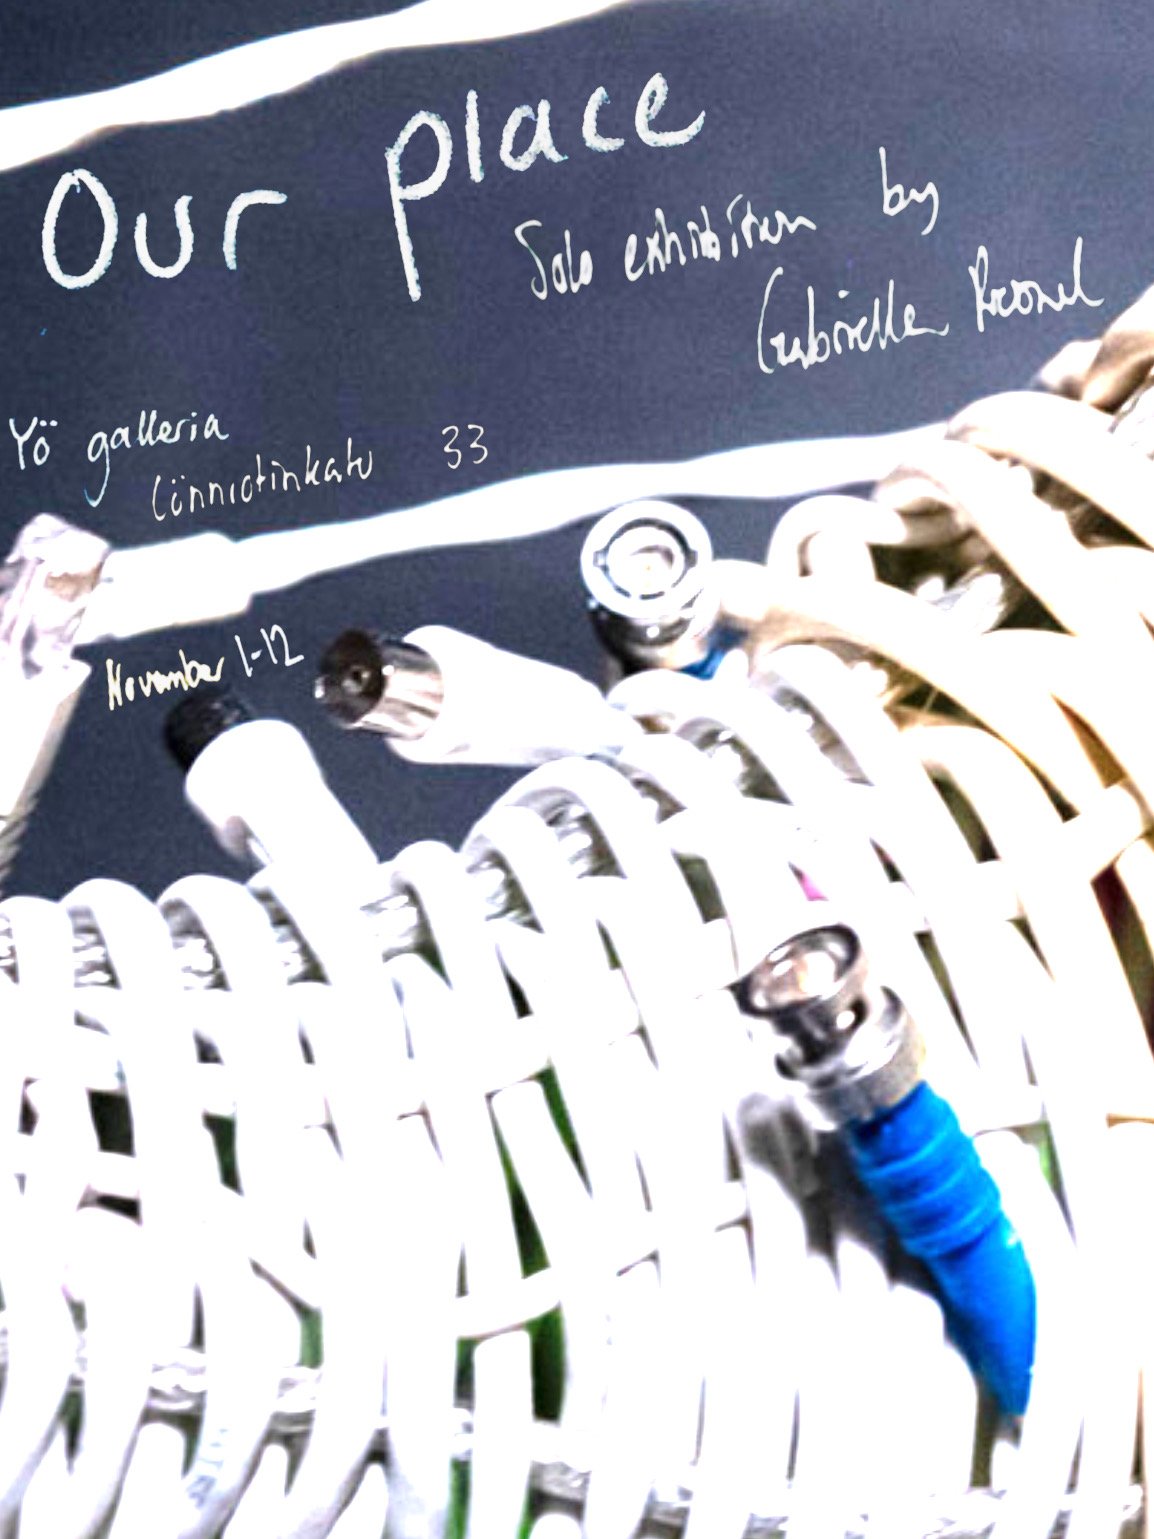 Our place
Solo exhibition by
Gabriella
Yö galleria
Lönnrotinkatu 33
November 1-12